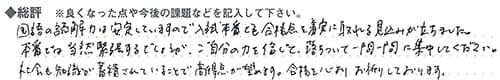 ◆総評 ※良くなった点や今後の課題などを記入して下さい。
国語の読解力は安定していますので入試本番でも合格点を着実に取れる見込みが立ちました。
本番では当然緊張するでしょうが、ご自分の力を信じて、落ちついて一問一問に集中してください。
社会も知識が蓄積されていることで高得点が望めます。合格を心よりお祈りしております。